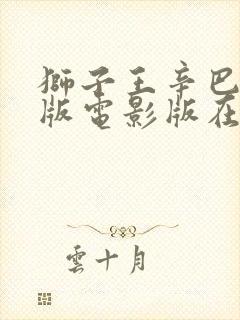 獅子王辛巴
版電影版在
雲十月